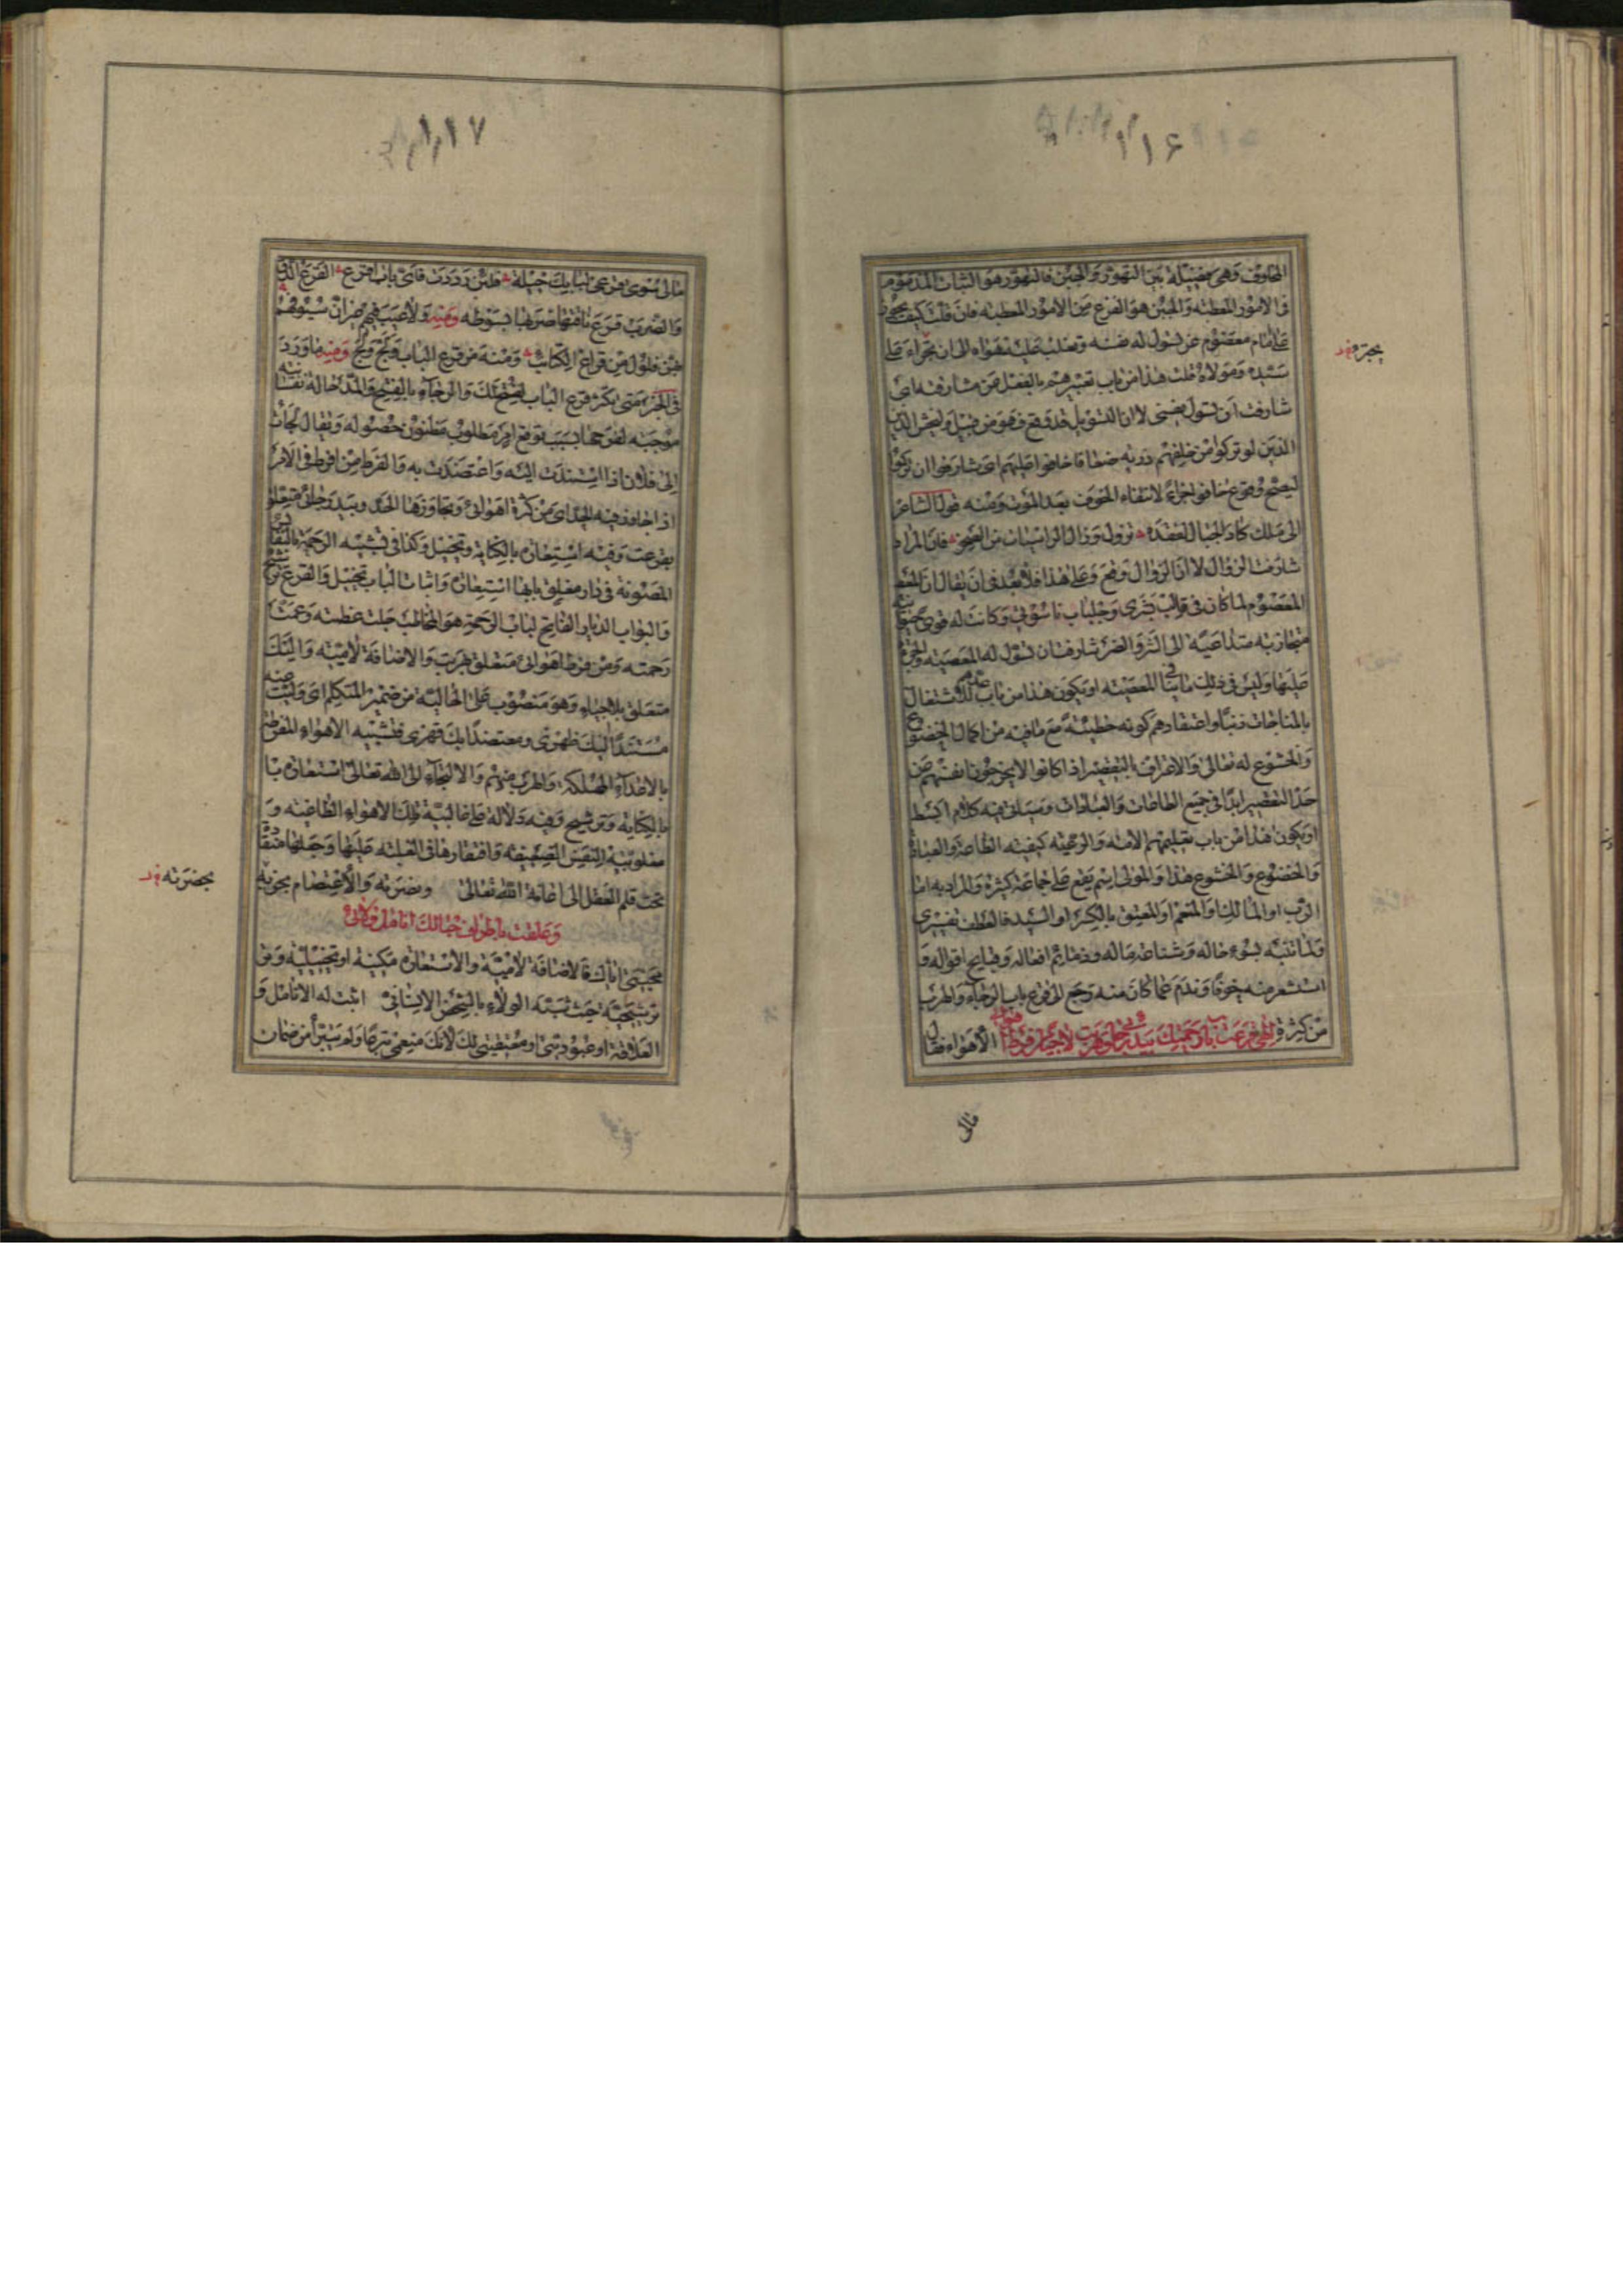 ١١۶
المخاوف وهى فضيلة بين التهور والجبن فالتهور هو الثبات المذموم
فى الامور المعطبة والجبن هو الفزع من الامور المعطبة فان قلت كيف يجوز
على امام معصوم عن تسول له نفسه وتغلب عليه هواه الى ان يجراء على
سيده ومولاه قلت هذا من باب تعبيرهم بالفعل عن مشارفه اى
شارفت ان تسول نفسى لا ان التسويل قد وقع فهو من قبيل وليخش الذين
الذين لو تركوا من خلفهم ذرية ضعافا خافوا عليهم اى شارفوا ان تركوا
ليصح وقوع خافوا جزاء لانتفاء الخوف بعد الموت ومنه قول الشاعر
الى ملك كاد الجبال لفقده تزول وزال الراسيات من الصخر فان المراد
شارفت الزوال لا ان الزوال وقع وعلى هذا فلا بعد فى ان يقال ان
المعصوم لما كان فى قالب بشرى وجلباب ناسوتى وكانت له قوى
متجاذبة متداعية الى الشر والضر شارفت ان تسول له المعصية
عليها وليس فى ذلك ما ينافى المعصية او يكون هذا من باب عد الاشتغال
بالمباحات ذنبا واعتقادهم كونه خطيئة مع ما فيه من اكمال الخضوع
والخشوع له تعالى والاعتراف بالتقصير اذ كانوا لا يخرجون انفسهم عن
حد التقصير ابدا فى جميع الطاعات والعبادات وسياتى فيه كلام ابسط
او يكون هذا من باب تعليمهم الامة والرعية كيفية الطاعة والعبادة
والخضوع والخشوع هذا والمولى اسم يقع على جماعة كثيرة والمراد به اما
الرب او المالك او المنعم او المعتق بالكسر او السيد فالعطف تفسيرى
ولما تنبه بسوء حاله وشناعة ماله وذمائم افعاله وقبايح اقواله و
استشعر منه خوفا وندم عما كان منه رجع الى قرع باب الرجاء والهرب
من كثرة الاهواء فقال الهى قرعت باب رحمتك بيد رجائى وهربت اليك لاجيا من فرط اهوائى
يجترء
فالى
١١٧
مالى سوى قرعى لبابك حيلة فلئن رددت فاى باب اقرع القرع الدق
والضرب قرع ناقته اى ضربها بسوطه ومنه ولا عيب فيهم غير ان سيوفهم
بهن فلول من قراع الكتائب ومنه من قرع الباب ولج ولج ومنه ما ورد
فى الخبر متى تكثر قرع الباب يفتح لك والرجاء بالفتح والمد حالة نفسانية
موجبة لفرحها بسبب توقع امر مطلوب مظنون حصوله ويقال لجات
الى فلان اذا استندت اليه واعتضدت به والفرط من افرط فى الامر
اذا جاوز فيه الحد اى من كثرة اهوائى وتجاوزها الحد وبيد رجائى متعلق
بقرعت وفيه استعارة بالكناية وتخييل وكذا فى تشبيه الرحمة بالنفايس
المصئونة فى دار مغلق بابها استعارة واثبات الباب تخييل والقرع ترشيح
والبواب الديار الفاتح لباب الرحمة هو المخاطب جلت عظمته وعمت
رحمته ومن فرط اهوائى متعلق بهربت والاضافة لامية واليك
متعلق بلاجيا وهو منصوب على الحالية من ضمير المتكلم اى وليت
مستندا اليك ظهرى ومعتضدا بك فقرى فتشبيه الاهواء المفرطة
بالاعداء المهلكة والهرب منهم والالتجاء الى الله تعالى استعارة
بالكناية وترشيح وفيه دلالة على غالبية تلك الاهواء الطاغية و
مغلوبية النفس الضعيفة وافتقارها فى الغلبة عليها وجعلها منقادة
تحت قلم العقل الى اعانة الله تعالى ونصرته والاعتصام بحوله
وعلقت باطراف حبالك انامل ولائى
محبتى اياك فالاضافة لامية والاستعارة مكنية او تخييلية وفى
ترشيحية حيث شبه الولاء بالشخص الانسانى اثبت له الانامل و
العلاقة او عبوديتى او معتقيتى لك لانك منعمى
بحضرته